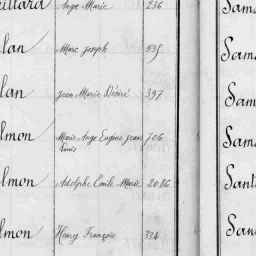 uillard Ange Marie 236 Sam
lan Marc Joseph 835 Sam
lan Jean Marie Désiré 397 Sam
lmon Marie Ange Eugène Jean 706 Sam
Louis
lmon Adolphe Emile Marie 2086 Sant
lmon Henry François 334 San